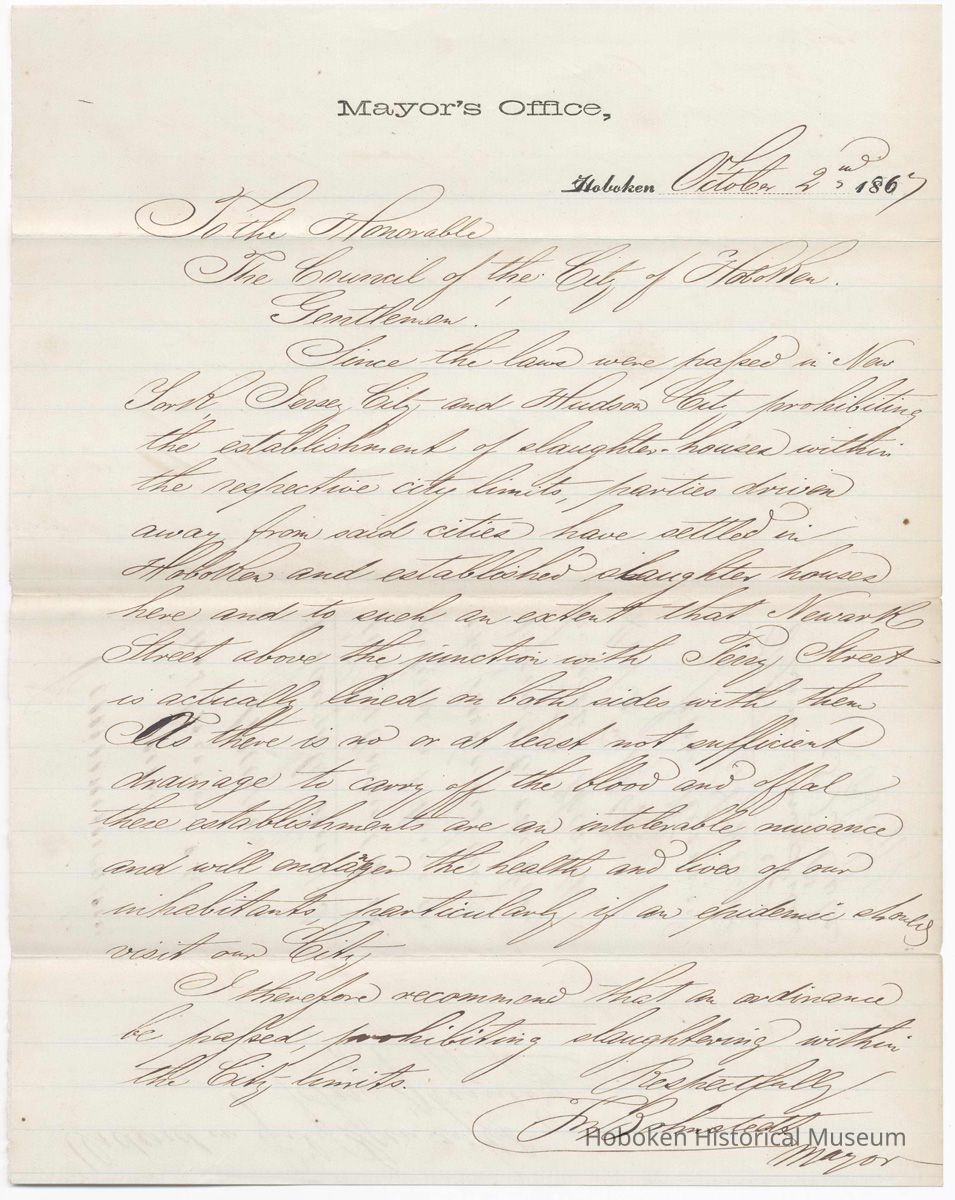 Mayor's Office,
Hoboken October 2nd 1867
To the Honorable
The Council of the City of Hoboken.
Gentlemen!
Since the laws were passed in New
York, Jersey City and Hudson City prohibiting
the establishment of slaughter-houses within
the respective city limits, parties driven
away from said cities have settled in
Hoboken and established slaughter houses
here and to such an extent that Newark
Street above the junction with Ferry Street
is actually lined on both sides with them
As there is no or at least not sufficient
drainage to carry off the blood and offal
these establishments are an intolerable nuisance
and will endanger the health and lives of our
inhabitants, particularly if an epidemic should
visit our City.
I therefore recommend that an ordinance
be passed, prohibiting slaughtering within
the City limits.
Respectfully
Fr. Bohnstedt
Mayor
Hoboken Historical Museum